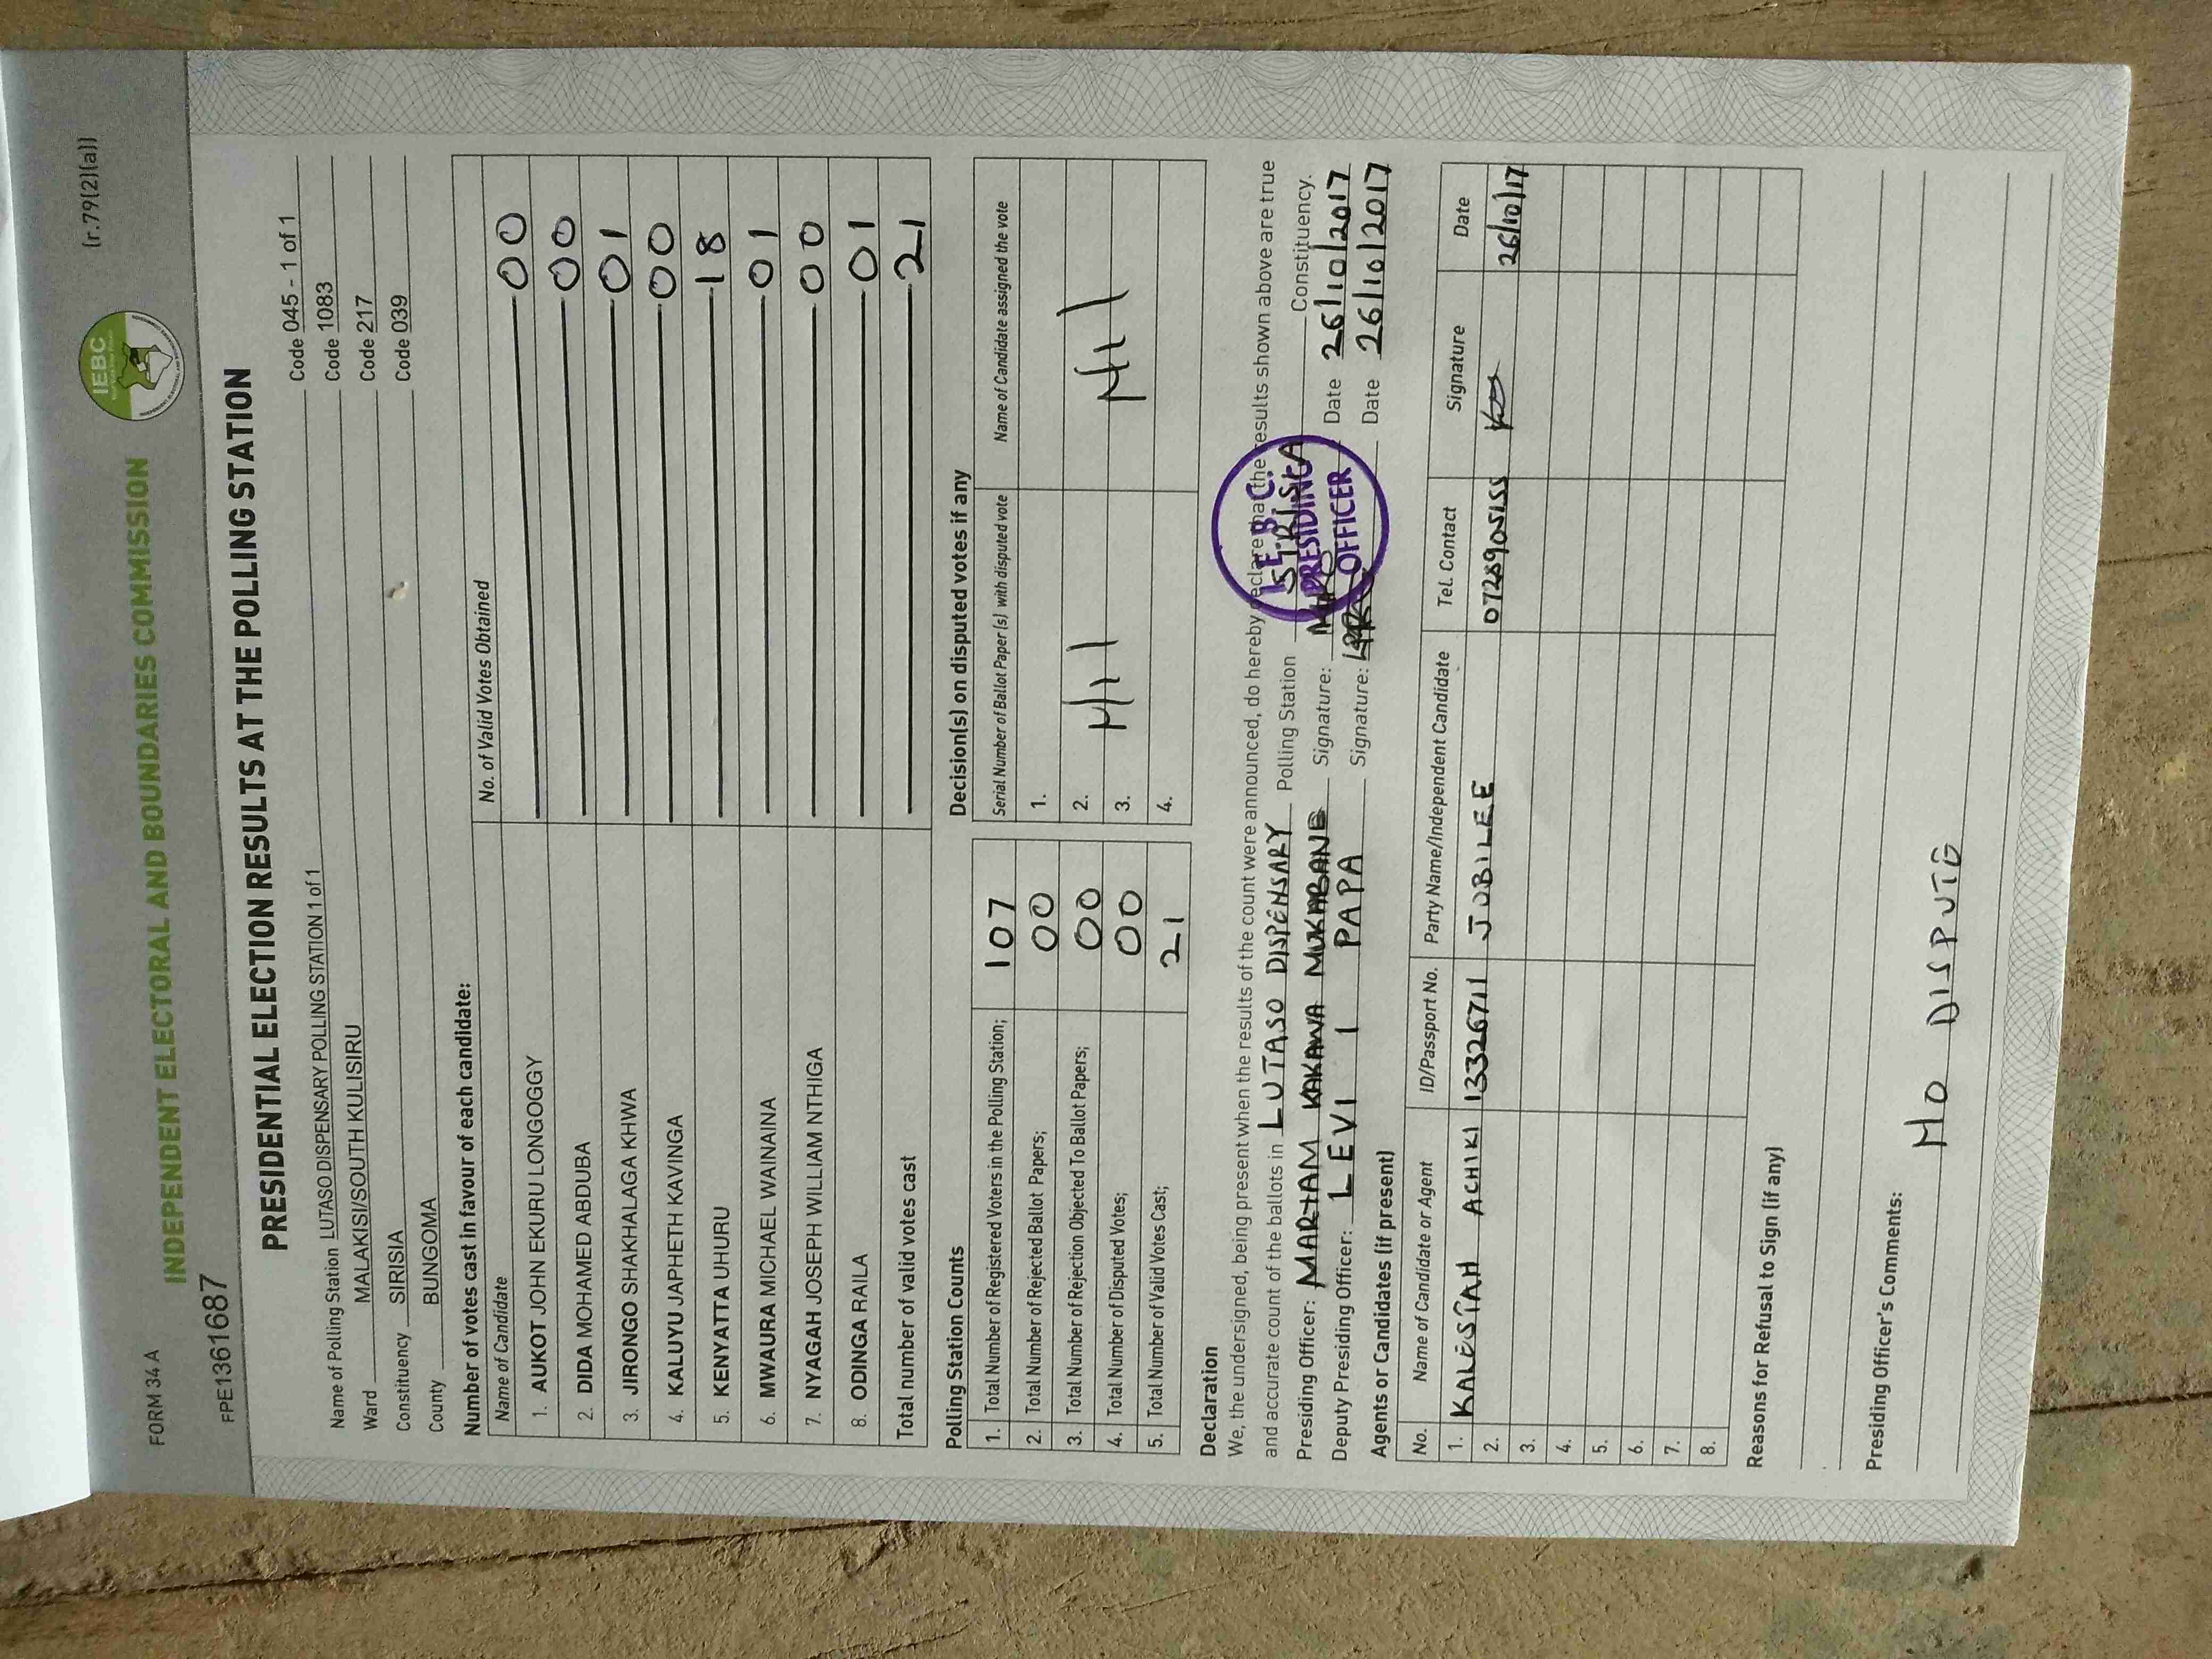 FORM 34 A
(r.79(2)(a))
IEBC
INDEPENDENT ELECTORAL AND BOUNDARIES COMMISSION
FPE1361687
PRESIDENTIAL ELECTION RESULTS AT THE POLLING STATION
Name of Polling Station LUTASO DISPENSARY POLLING STATION 1 of 1 Code 045 - 1 of 1
Ward MALAKISI/SOUTH KULISIRU Code 1083
Constituency SIRISIA Code 217
County BUNGOMA Code 039
Number of votes cast in favour of each candidate:
Name of Candidate No. of Valid Votes Obtained
1. AUKOT JOHN EKURU LONGOGGY 00
2. DIDA MOHAMED ABDUBA 00
3. JIRONGO SHAKHALAGA KHWA 01
4. KALUYU JAPHETH KAVINGA 00
5. KENYATTA UHURU 18
6. MWAURA MICHAEL WAINAINA 01
7. NYAGAH JOSEPH WILLIAM NTHIGA 00
8. ODINGA RAILA 01
Total number of valid votes cast 21
Polling Station Counts
1. Total Number of Registered Voters in the Polling Station; 107
2. Total Number of Rejected Ballot Papers; 00
3. Total Number of Rejection Objected To Ballot Papers; 00
4. Total Number of Disputed Votes; 00
5. Total Number of Valid Votes Cast; 21
Decision(s) on disputed votes if any
Serial Number of Ballot Paper (s) with disputed vote Name of Candidate assigned the vote
1.
2. NIl NIl
3.
4.
Declaration
We, the undersigned, being present when the results of the count were announced, do hereby declare that the results shown above are true
and accurate count of the ballots in LUTASO DISPENSARY Polling Station SIRISIA Constituency.
Presiding Officer: MARIAM KAKAWA MUKHABANE Signature: Date 26/10/2017
Deputy Presiding Officer: LEVI I PAPA Signature: Date 26/10/2017
I.E.B.C.
PRESIDING
OFFICER
Agents or Candidates (if present)
No. Name of Candidate or Agent ID/Passport No. Party Name/Independent Candidate Tel. Contact Signature Date
1. KALESTAH ACHIKI 13326711 JUBILEE 0728905155 26/10/17
2.
3.
4.
5.
6.
7.
8.
Reasons for Refusal to Sign (if any)
Presiding Officer's Comments:
NO DISPUTE